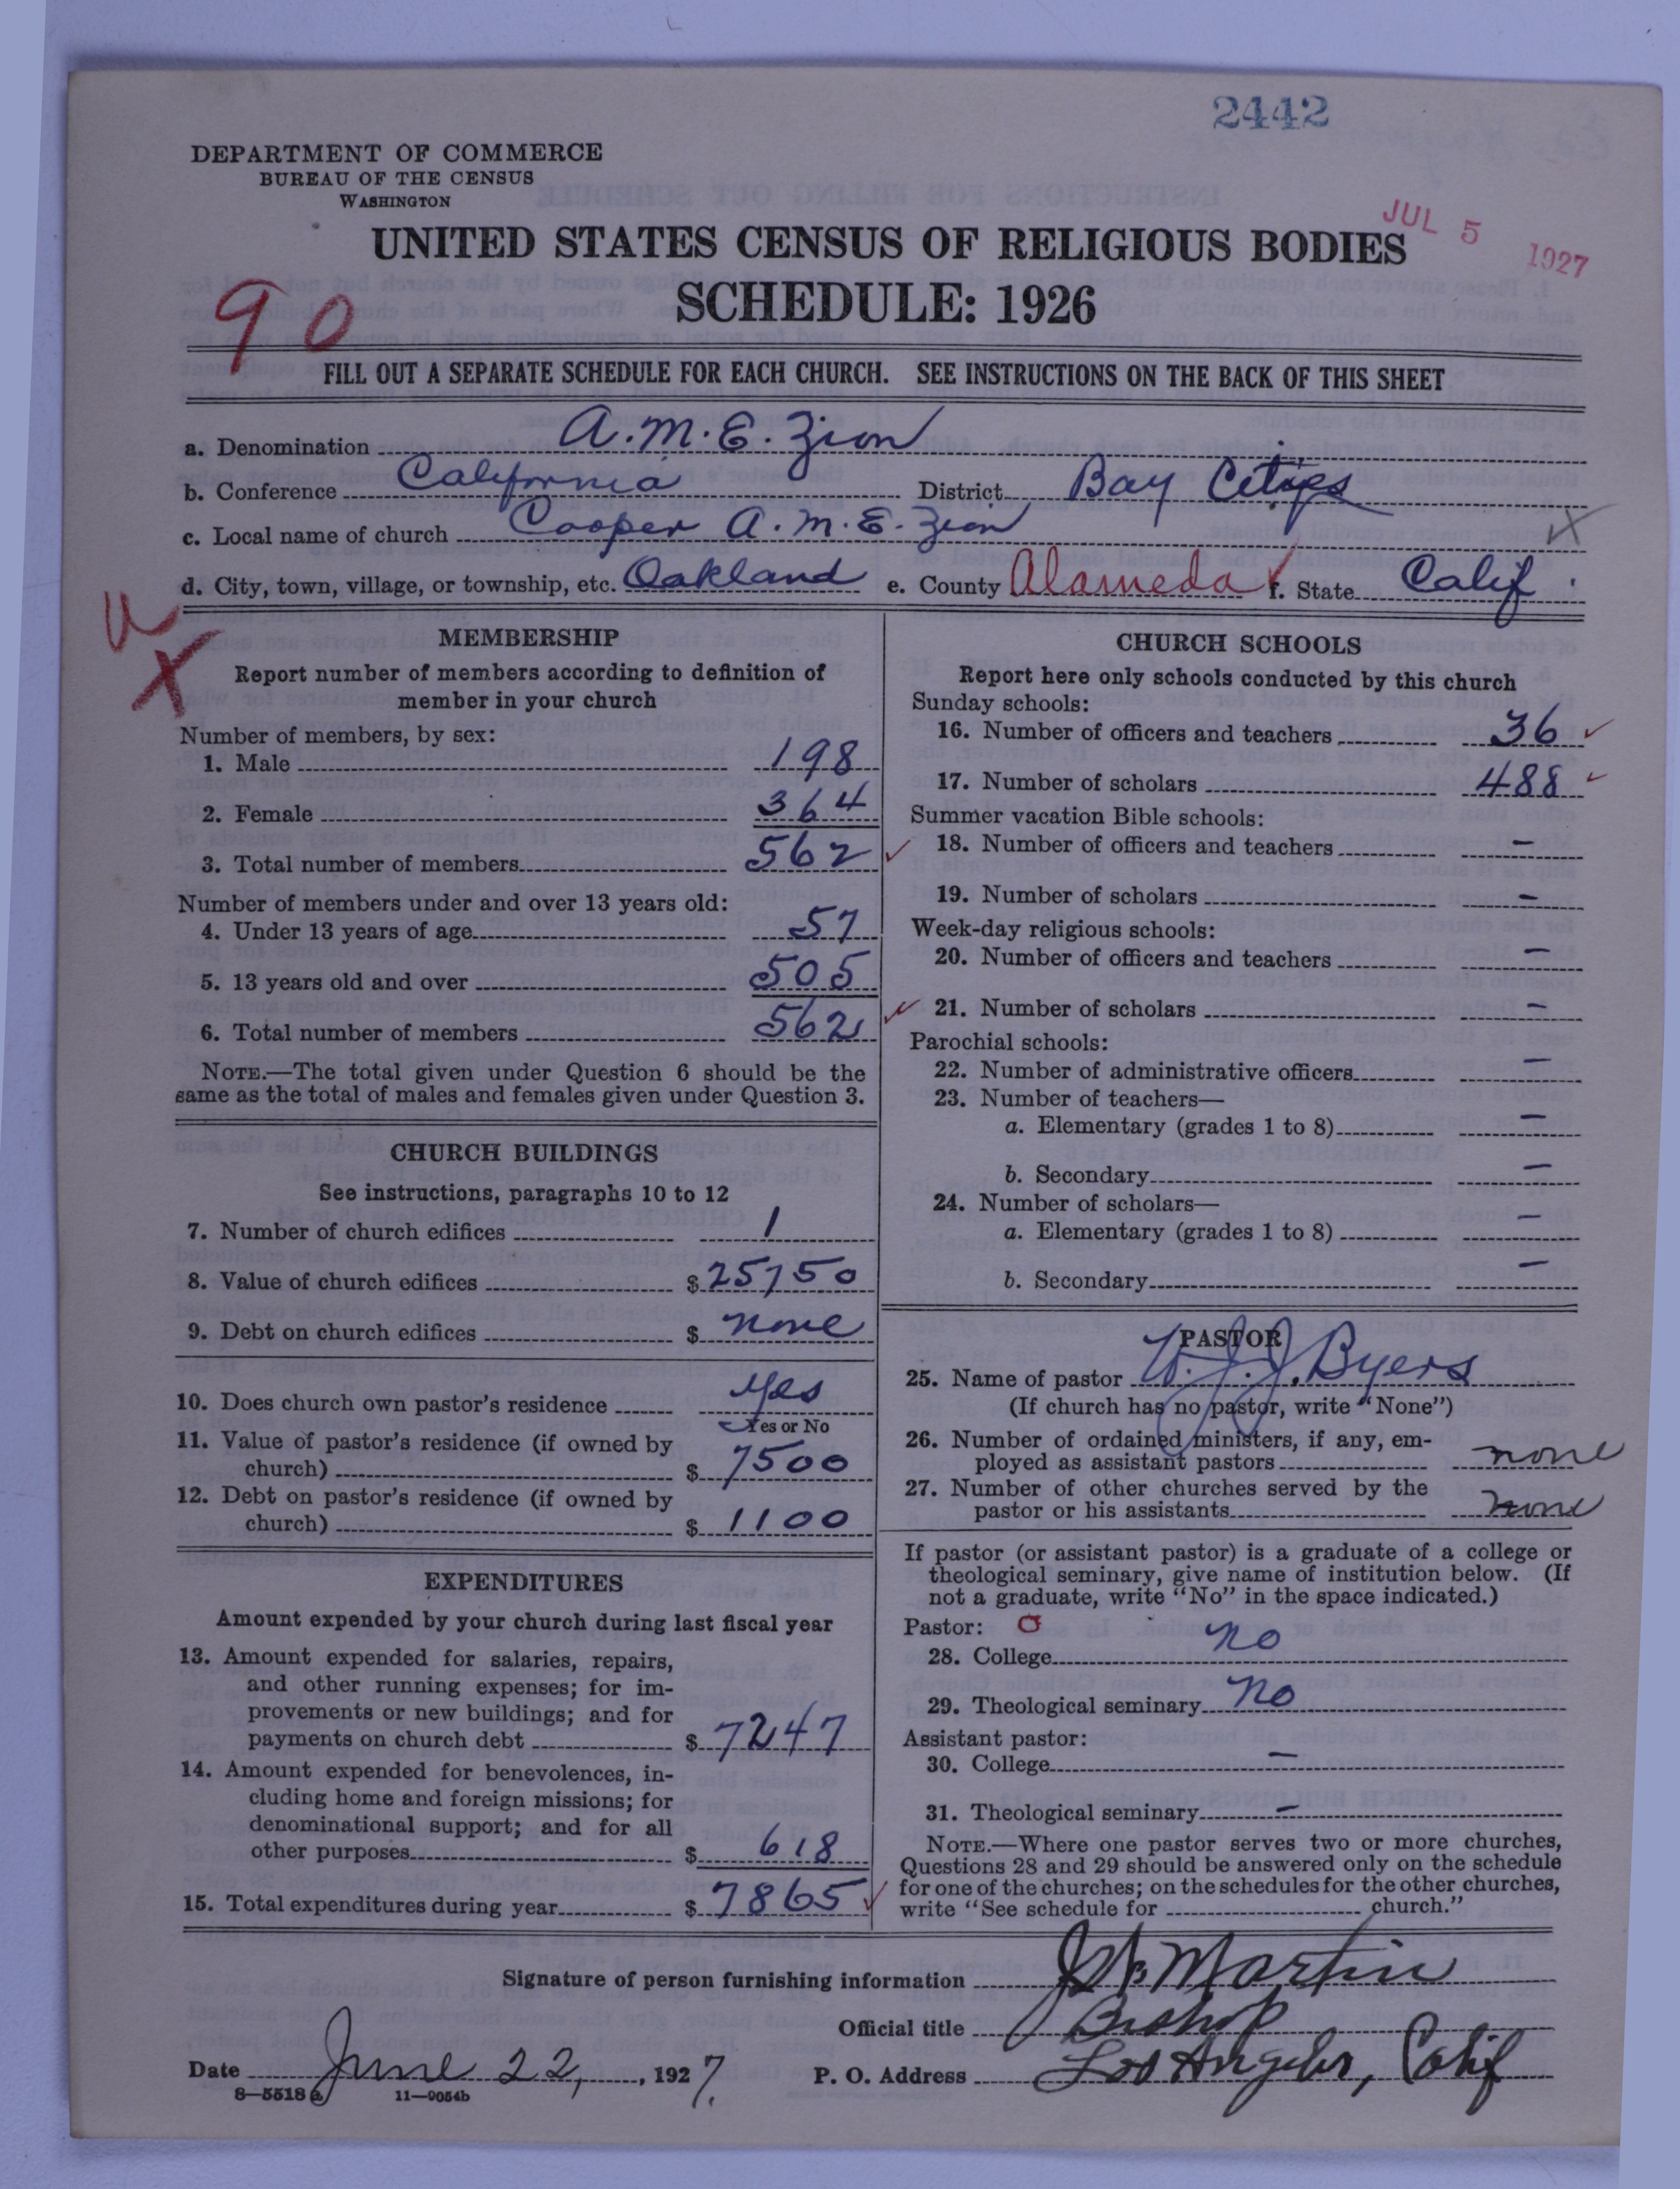 2442
DEPARTMENT OF COMMERCE
BUREAU OF THE CENSUS
WASHINGTON
JUL 5 1927
UNITED STATES CENSUS OF RELIGIOUS BODIES
SCHEDULE: 1926
90
FILL OUT A SEPARATE SCHEDULE FOR EACH CHURCH. SEE INSTRUCTIONS ON THE BACK OF THIS SHEET
a. Denomination A.M.E. Zion
b. Conference California District Bay Cities
c. Local name of church Cooper A.M.E. Zion
d. City, town, village, or township, etc. Oakland e. County Alameda f. State Calif.
MEMBERSHIP
Report number of members according to definition of
member in your church
Number of members, by sex:
1. Male 198
2. Female 364
3. Total number of members 562
Number of members under and over 13 years old:
4. Under 13 years of age 57
5. 13 years old and over 505
6. Total number of members 562
NOTE.—The total given under Question 6 should be the
same as the total of males and females given under Question 3.
CHURCH BUILDINGS
See instructions, paragraphs 10 to 12
7. Number of church edifices 1
8. Value of church edifices $ 25750
9. Debt on church edifices $ none
10. Does church own pastor's residence yes
Yes or No
11. Value of pastor's residence (if owned by
church) $ 7500
12. Debt on pastor's residence (if owned by
church) $ 1100
EXPENDITURES
Amount expended by your church during last fiscal year
13. Amount expended for salaries, repairs,
and other running expenses; for im-
provements or new buildings; and for
payments on church debt $ 7247
14. Amount expended for benevolences, in-
cluding home and foreign missions; for
denominational support; and for all
other purposes $ 618
15. Total expenditures during year $ 7865
CHURCH SCHOOLS
Report here only schools conducted by this church
Sunday schools:
16. Number of officers and teachers 36
17. Number of scholars 488
Summer vacation Bible schools:
18. Number of officers and teachers –
19. Number of scholars –
Week-day religious schools:
20. Number of officers and teachers –
21. Number of scholars –
Parochial schools:
22. Number of administrative officers –
23. Number of teachers—
a. Elementary (grades 1 to 8) –
b. Secondary –
24. Number of scholars—
a. Elementary (grades 1 to 8) –
b. Secondary –
PASTOR
25. Name of pastor W. J. J. Byers
(If church has no pastor, write "None")
26. Number of ordained ministers, if any, em-
ployed as assistant pastors none
27. Number of other churches served by the
pastor or his assistants none
If pastor (or assistant pastor) is a graduate of a college or
theological seminary, give name of institution below. (If
not a graduate, write "No" in the space indicated.)
Pastor: O
28. College no
29. Theological seminary no
Assistant pastor:
30. College –
31. Theological seminary –
NOTE.—Where one pastor serves two or more churches,
Questions 28 and 29 should be answered only on the schedule
for one of the churches; on the schedules for the other churches,
write "See schedule for church."
Signature of person furnishing information Martin
Official title Bishop
Date June 22, 1927. P. O. Address Los Angeles, Calif
8—5518 a 11—9054b